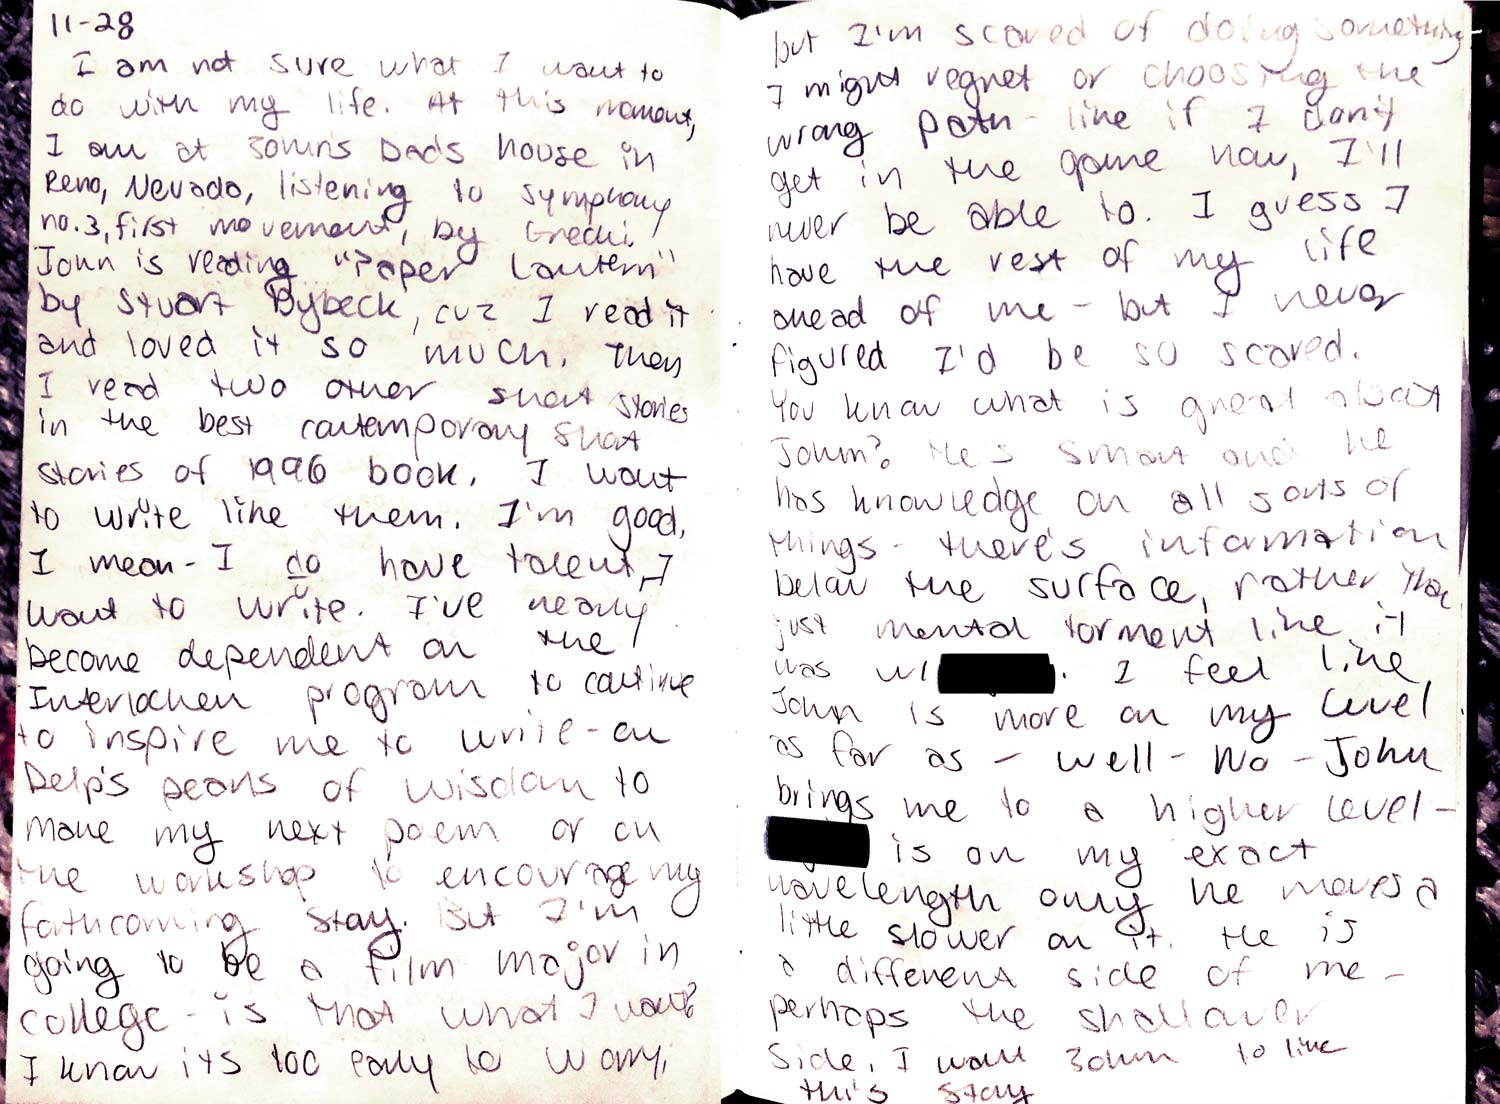 11-28
I am not sure what I want to
do with my life. At this moment,
I am at John's Dad's house in
Reno, Nevada, listening to symphony
no. 3, first movement, by Grecki.
John is reading "Paper Lantern"
by Stuart Dybeck, cuz I read it
and loved it so much. Then
I read two other short stories
in the best contemporary short
stories of 1996 book. I want
to write like them. I'm good,
I mean - I do have talent, I
want to write. I've nearly
become dependent on the
Interlochen program to continue
to inspire me to write - on
Delp's pearls of wisdom to
make my next poem or on
the workshop to encourage my
forthcoming story. But I'm
going to be a film major in
college - is that what I want?
I know its too early to worry,
but I'm scared of doing something
I might regret or choosing the
wrong path - like if I don't
get in the game now, I'll
never be able to. I guess I
have the rest of my life
ahead of me - but I never
figured I'd be so scared.
You know what is great about
John? He's smart and he
has knowledge on all sorts of
things - there's information
below the surface, rather than
just mental torment like it
was w/ . I feel like
John is more on my level
as far as - well - No - John
brings me to a higher level -
is on my exact
wavelength only he moves a
little slower on it. He is
a different side of me -
perhaps the shallower
side. I want John to like
this story